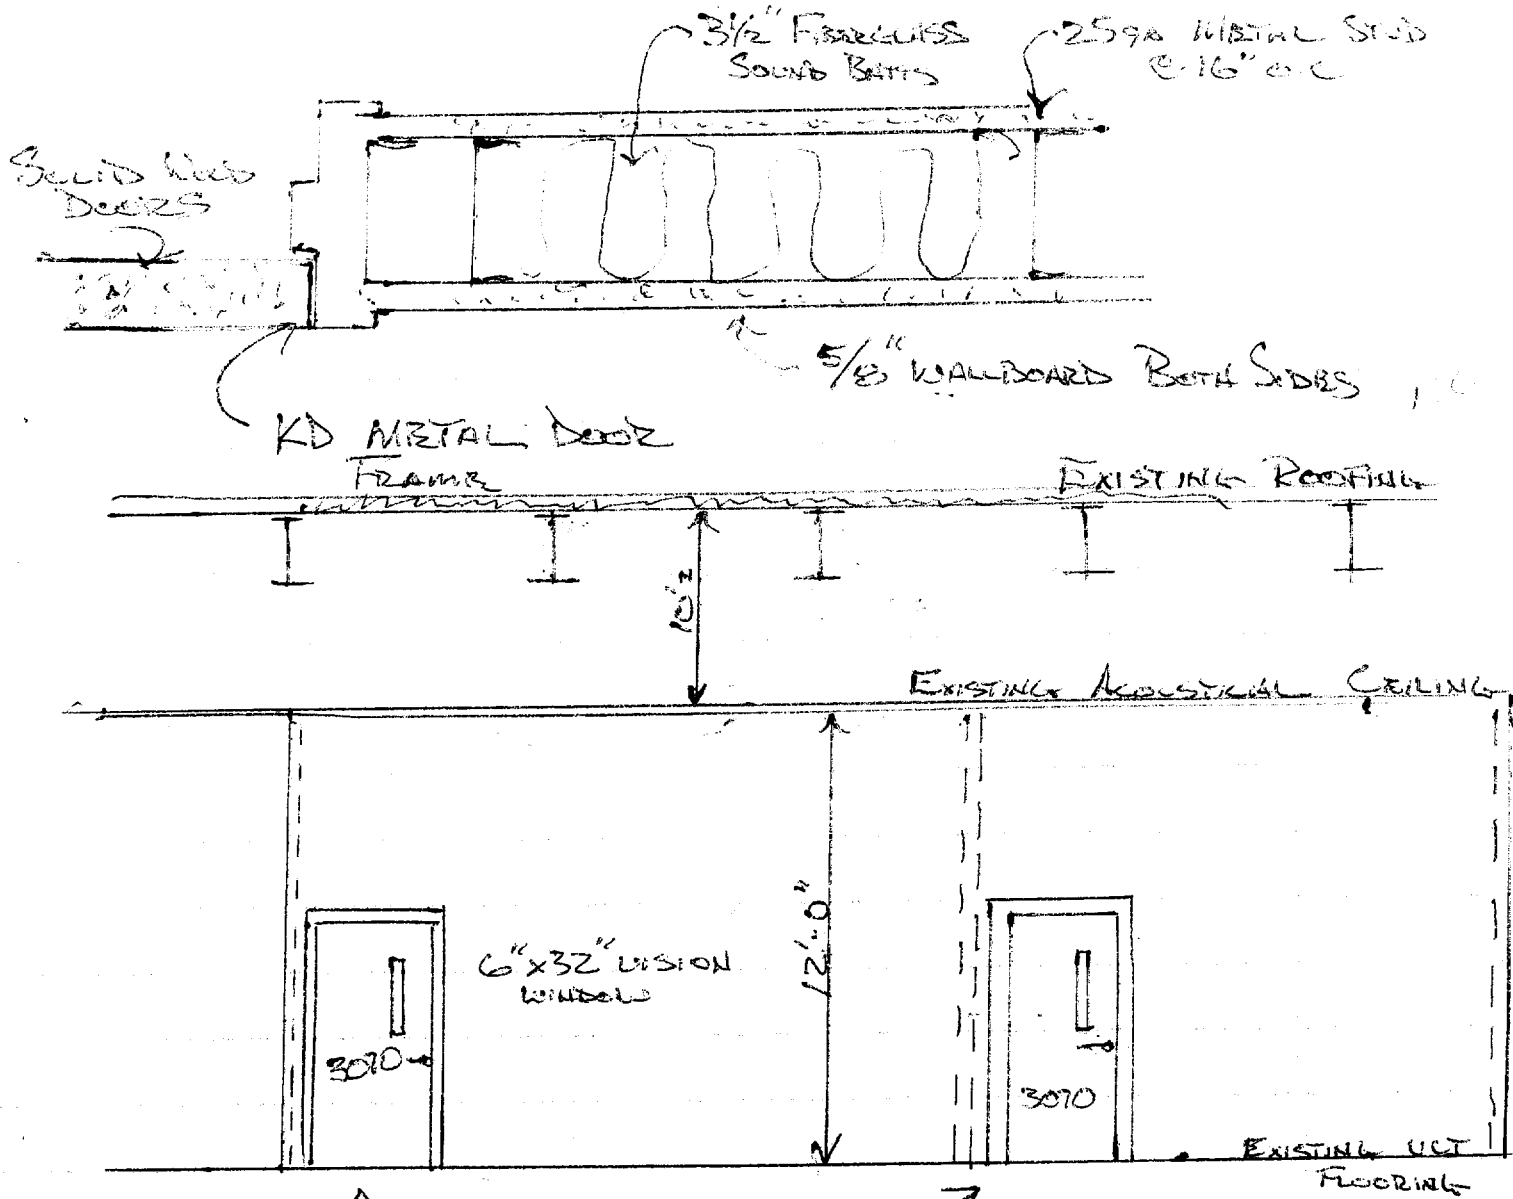 3½" FIBERGLASS
SOUND BATTS
25ga METAL STUD
@ 16" O.C
SOLID WOOD
DOORS
5/8" WALLBOARD BOTH SIDES
KD METAL DOOR
FRAME
EXISTING ROOFING
EXISTING ACOUSTICAL CEILING
6"x32" VISION
WINDOW
12'-0"
3070
3070
EXISTING VCT
FLOORING